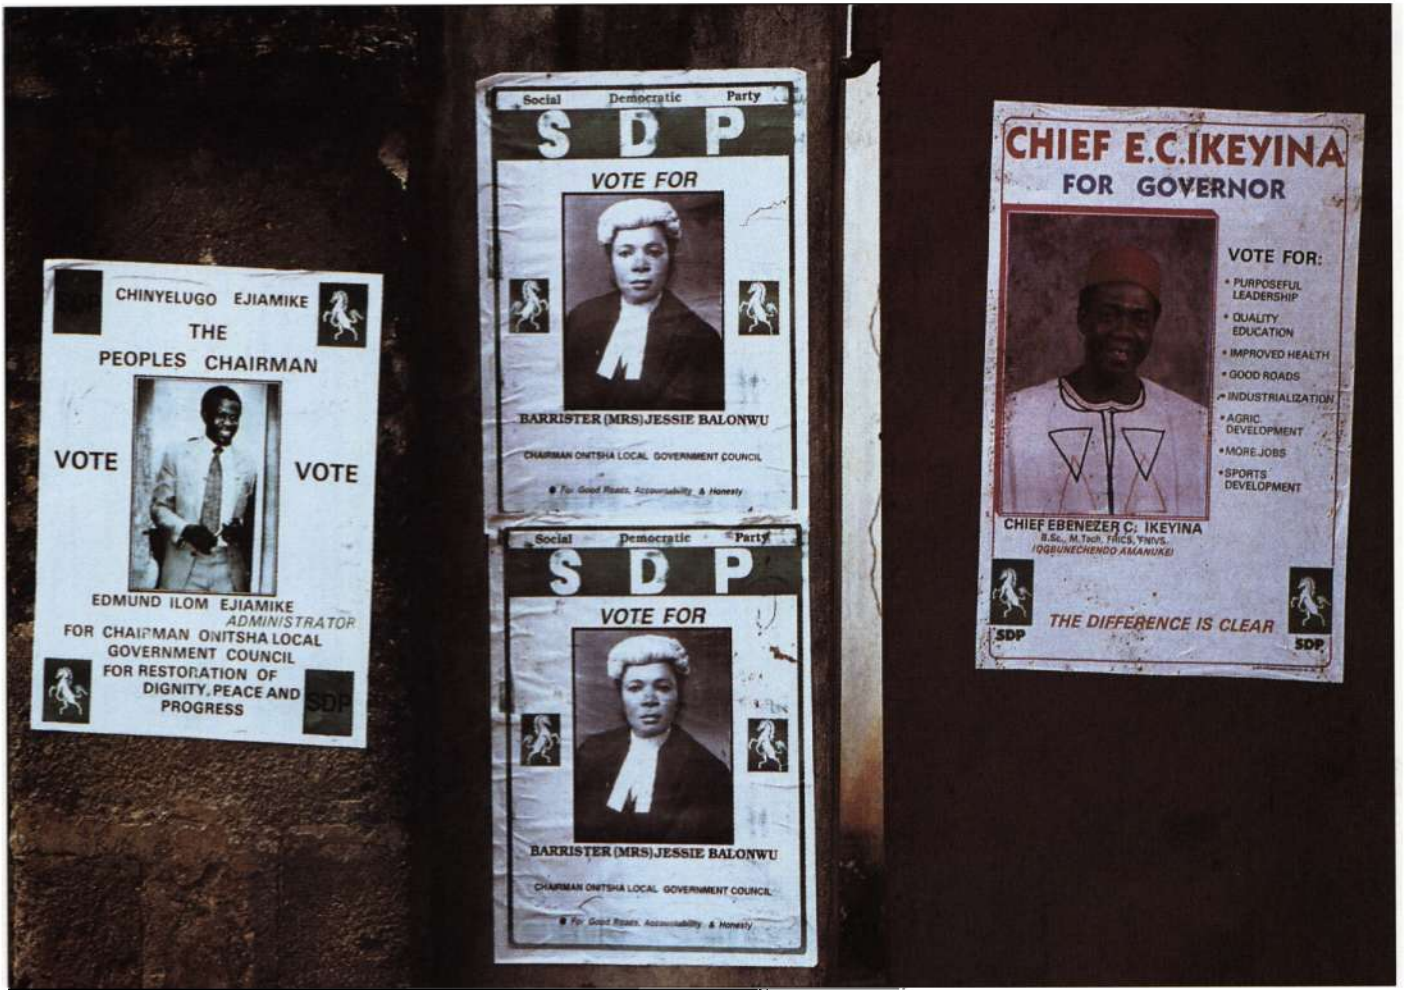 SDP
CHINYELUGO EJIAMIKE
THE
PEOPLES CHAIRMAN
VOTE
VOTE
EDMUND ILOM EJIAMIKE
ADMINISTRATOR
FOR CHAIRMAN ONITSHA LOCAL
GOVERNMENT COUNCIL
FOR RESTORATION OF
DIGNITY, PEACE AND
PROGRESS
SDP
Social Democratic Party
SDP
VOTE FOR
BARRISTER (MRS) JESSIE BALONWU
CHAIRMAN ONITSHA LOCAL GOVERNMENT COUNCIL
● For Good Roads, Accountability & Honesty
Social Democratic Party
SDP
VOTE FOR
BARRISTER (MRS) JESSIE BALONWU
CHAIRMAN ONITSHA LOCAL GOVERNMENT COUNCIL
● For Good Roads, Accountability & Honesty
CHIEF E.C.IKEYINA
FOR GOVERNOR
VOTE FOR:
• PURPOSEFUL
LEADERSHIP
• QUALITY
EDUCATION
• IMPROVED HEALTH
• GOOD ROADS
• INDUSTRIALIZATION
• AGRIC.
DEVELOPMENT
• MORE JOBS
• SPORTS
DEVELOPMENT
CHIEF EBENEZER C. IKEYINA
B.Sc., M.Tech, FRICS, FNIVS.
IOGBUNECHENDO AMANUKEI
THE DIFFERENCE IS CLEAR
SDP
SDP